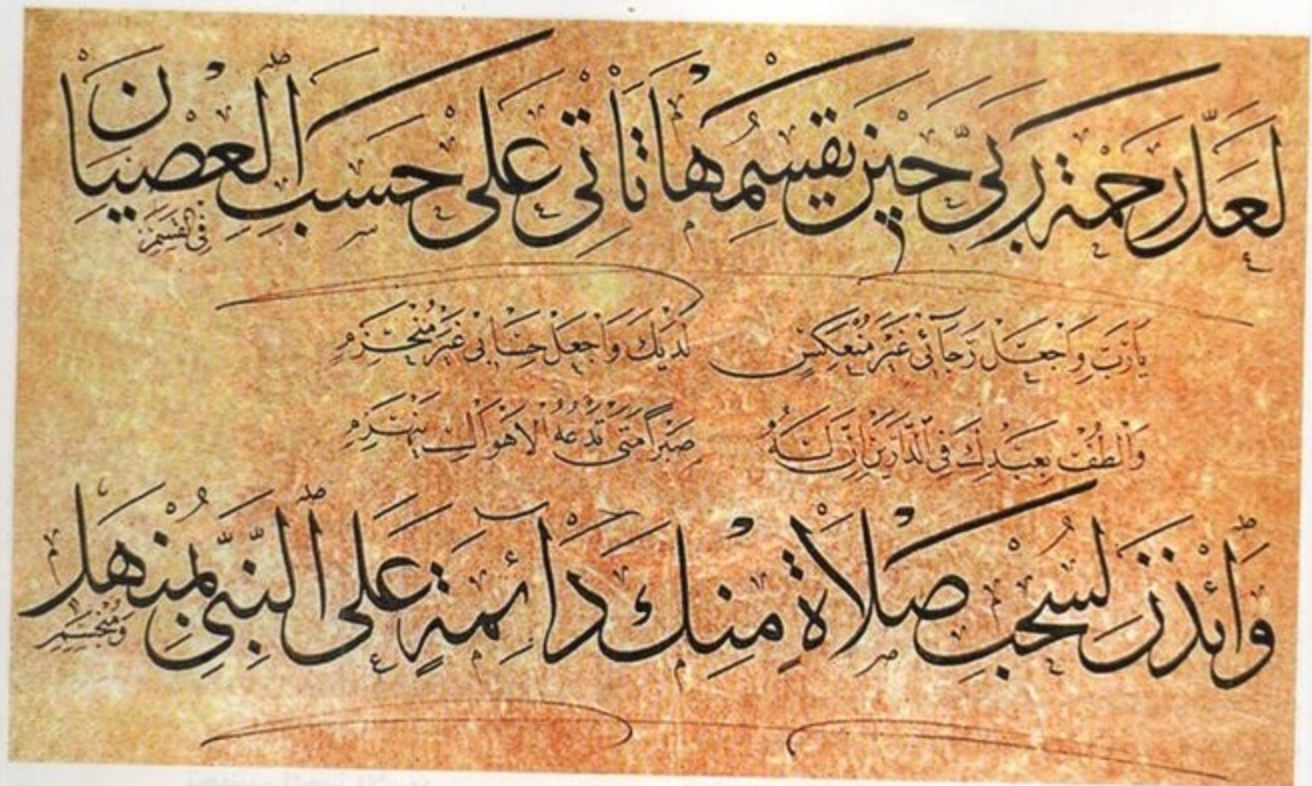 لَعَلَّ رَحْمَةَ رَبِّي حِينَ يَقْسِمُهَا تَأْتِي عَلَى حَسَبِ الْعِصْيَانِ
فِي الْقِسَمِ
يَا رَبِّ وَاجْعَلْ رَجَائِي غَيْرَ مُنْعَكِسٍ لَدَيْكَ وَاجْعَلْ حِسَابِي غَيْرَ مُنْخَرِمِ
وَالْطُفْ بِعَبْدِكَ فِي الدَّارَيْنِ إِنَّ لَهُ صَبْرًا مَتَى تَدْعُهُ الْأَهْوَالُ يَنْهَزِمِ
وَائْذَنْ لِسُحْبِ صَلَاةٍ مِنْكَ دَائِمَةٍ عَلَى النَّبِيِّ بِمُنْهَلٍّ
وَمُنْسَجِمِ